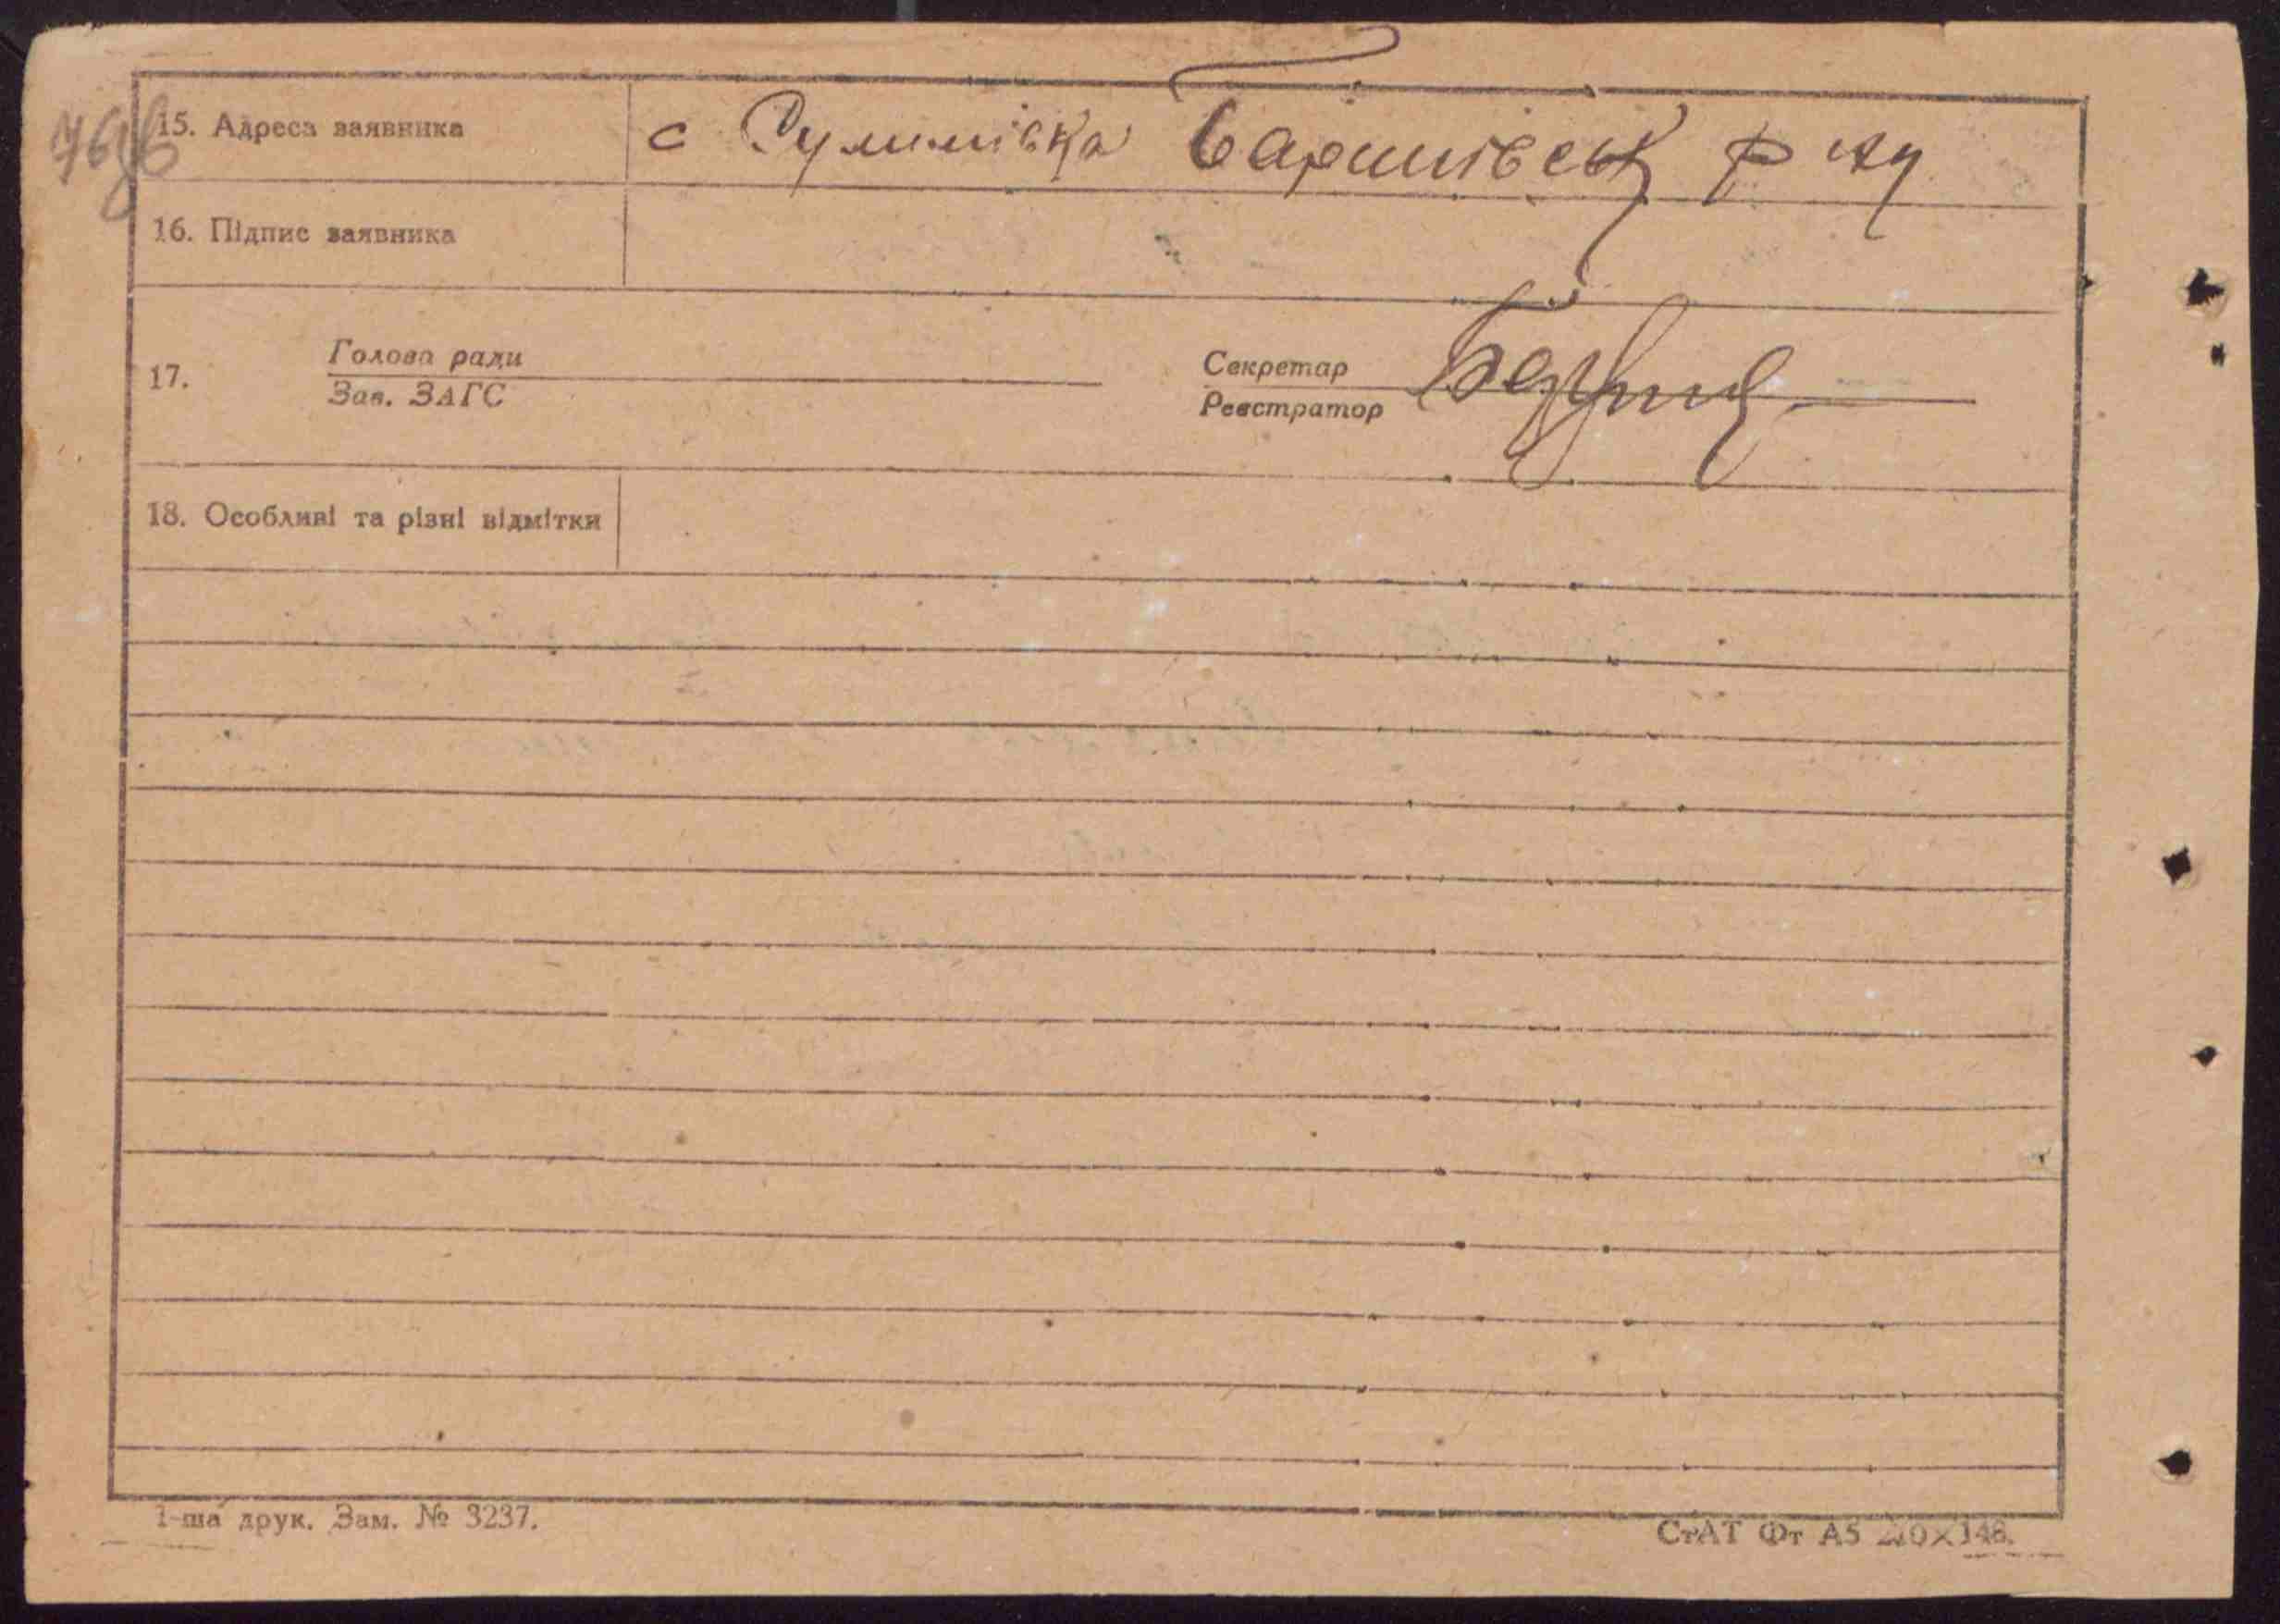 15. Адреса заявника с Сулимівка Баришівськ р ну
16. Підпис заявника
17. Голова ради
Зав. ЗАГС
Секретар
Реєстратор
18. Особливі та різні відмітки
1-ша друк. Зам. № 3237.
СтАТ Фт А5 210×148.